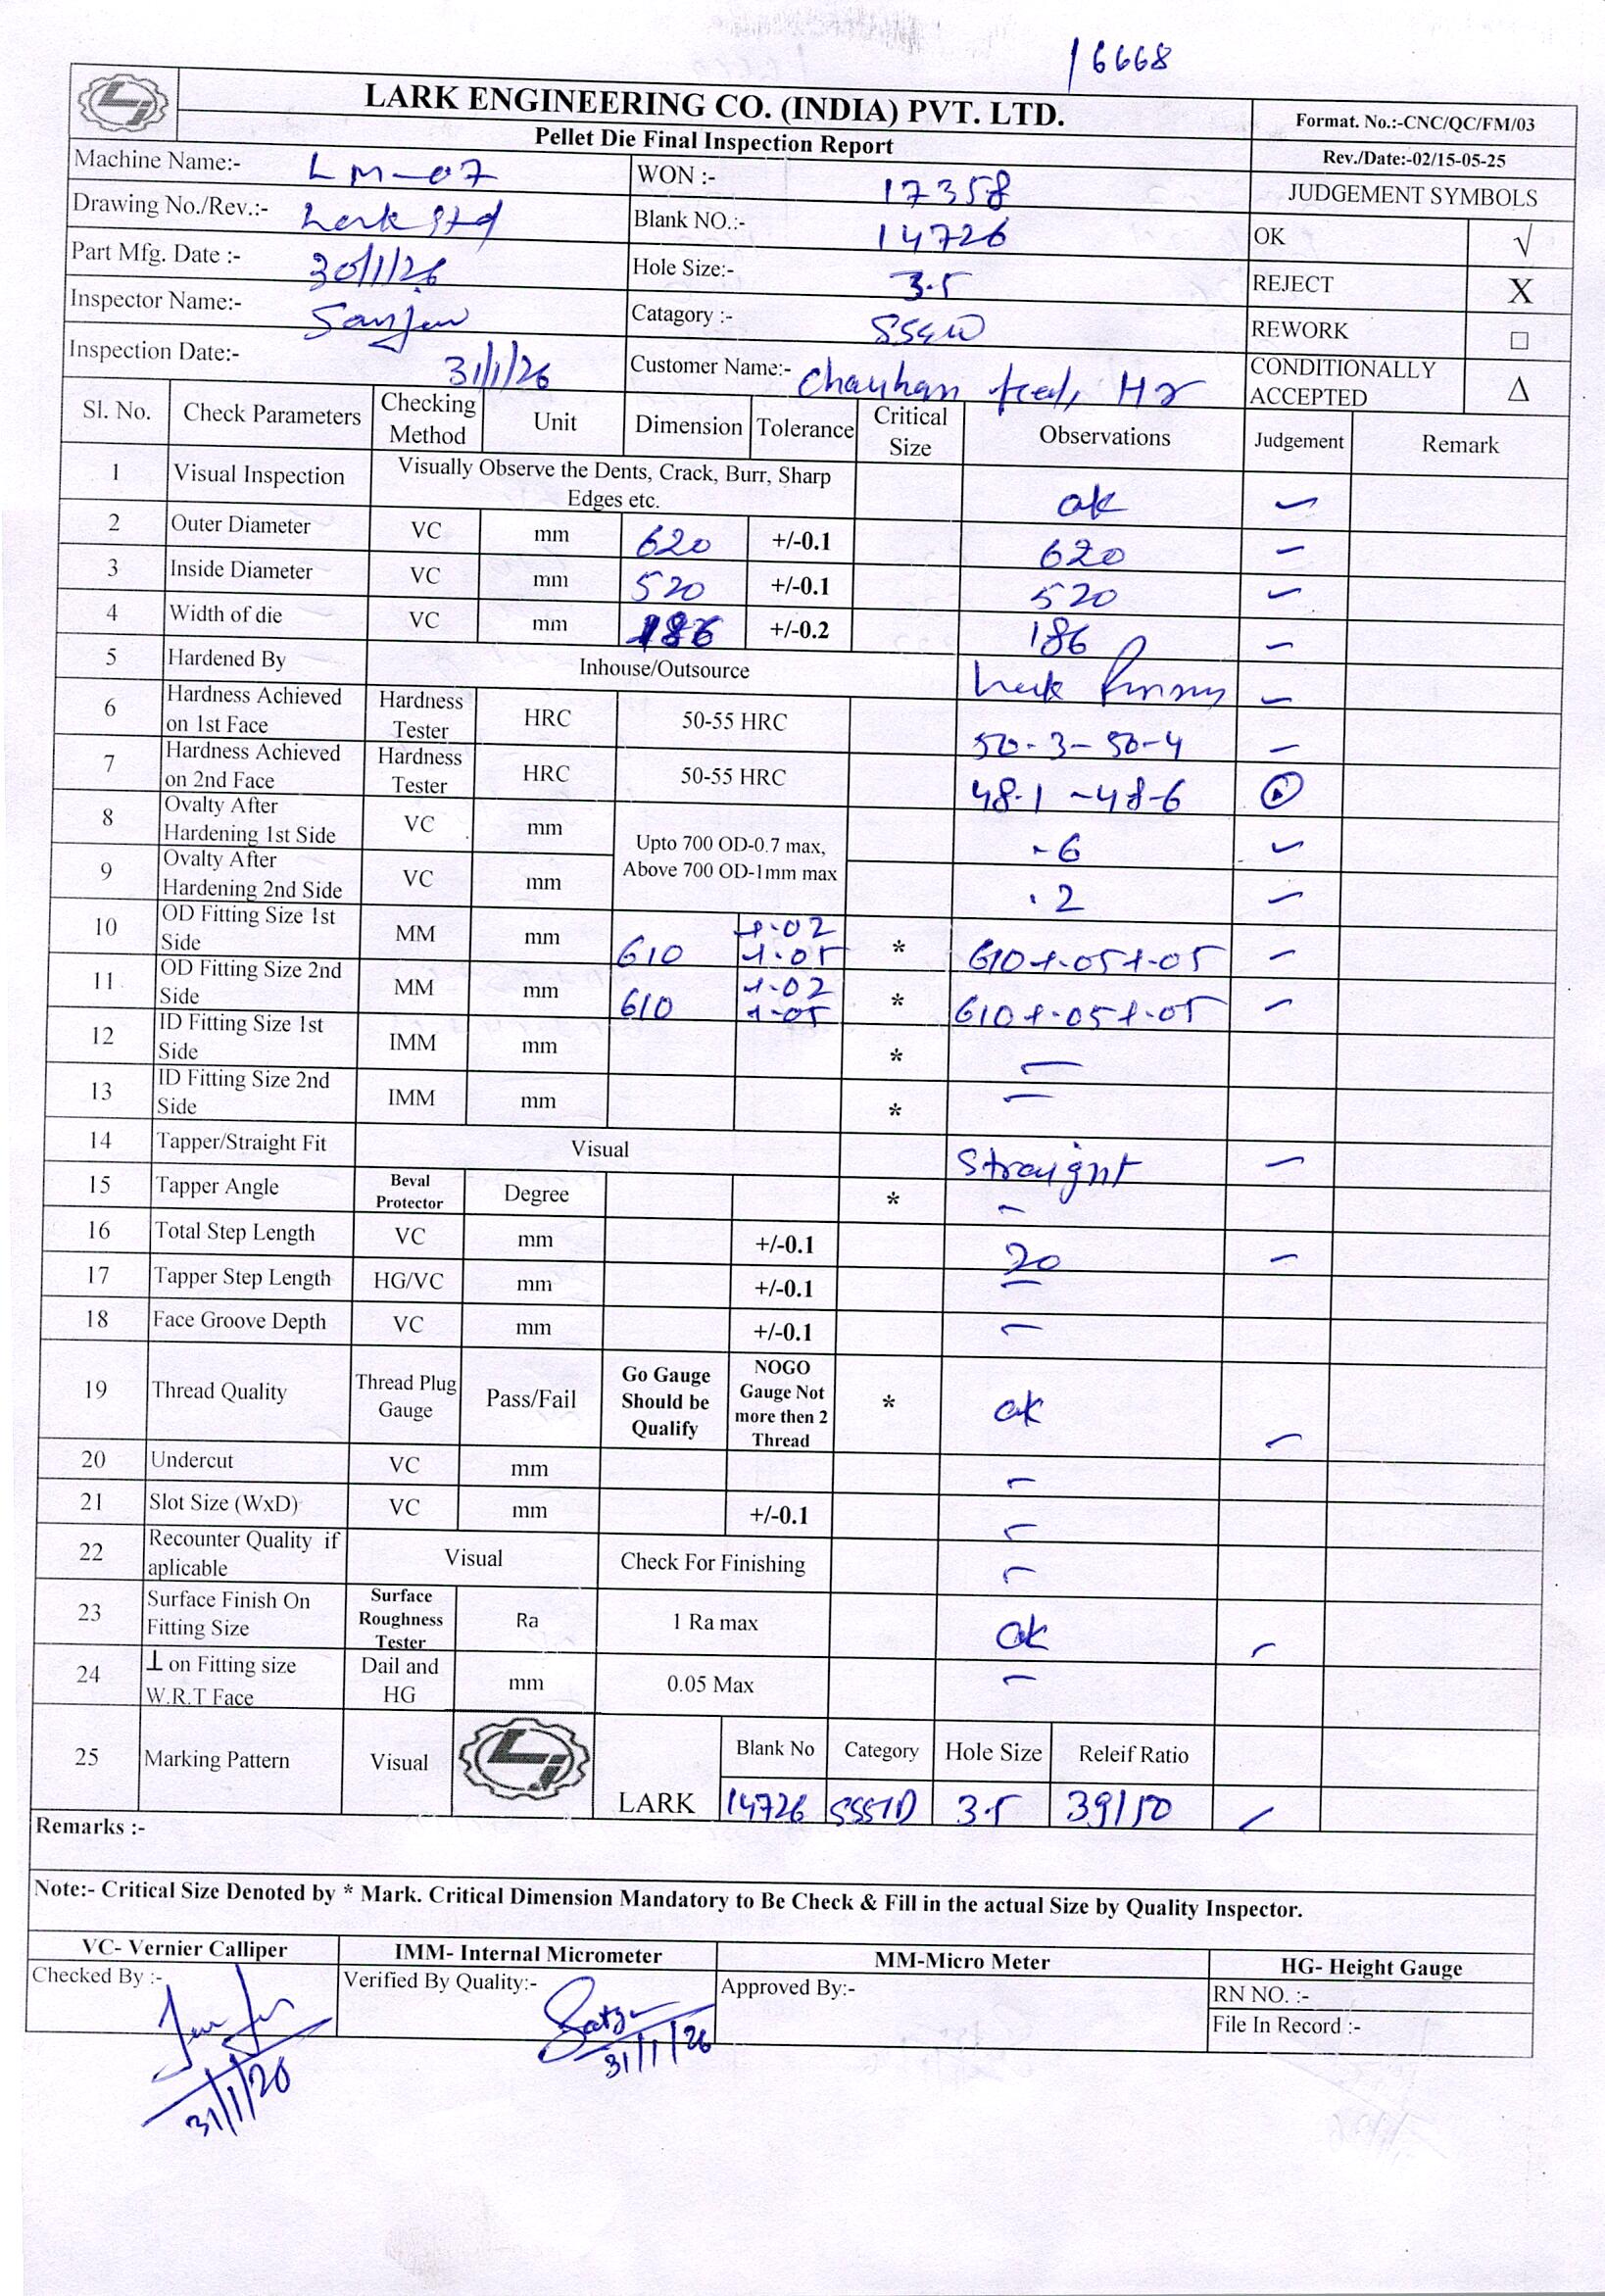 16668
LARK ENGINEERING CO. (INDIA) PVT. LTD.
Format. No.:-CNC/QC/FM/03
Pellet Die Final Inspection Report
Rev./Date:-02/15-05-25
Machine Name:- LM-07 WON :- 17358 JUDGEMENT SYMBOLS
Drawing No./Rev.:- Lark Std Blank NO.:- 14726 OK √
Part Mfg. Date :- 30/1/26 Hole Size:- 3.5 REJECT X
Inspector Name:- Catagory :- REWORK □
Inspection Date:- 31/1/26 Customer Name:- Chauhan feed, Hr CONDITIONALLY ACCEPTED Δ
Sl. No. Check Parameters Checking Method Unit Dimension Tolerance Critical Size Observations Judgement Remark
1 Visual Inspection Visually Observe the Dents, Crack, Burr, Sharp Edges etc. ok
2 Outer Diameter VC mm 620 +/-0.1 620
3 Inside Diameter VC mm 520 +/-0.1 520
4 Width of die VC mm 186 +/-0.2 186
5 Hardened By Inhouse/Outsource
6 Hardness Achieved on 1st Face Hardness Tester HRC 50-55 HRC 50-3-50-4
7 Hardness Achieved on 2nd Face Hardness Tester HRC 50-55 HRC 48.1 ~48-6
8 Ovalty After Hardening 1st Side VC mm Upto 700 OD-0.7 max, Above 700 OD-1mm max .6
9 Ovalty After Hardening 2nd Side VC mm .2
10 OD Fitting Size 1st Side MM mm 610 +.02 +.05 * 610+.05+.05
11 OD Fitting Size 2nd Side MM mm 610 +.02 +.05 * 610+.05+.05
12 ID Fitting Size 1st Side IMM mm * —
13 ID Fitting Size 2nd Side IMM mm * —
14 Tapper/Straight Fit Visual Straight
15 Tapper Angle Beval Protector Degree * —
16 Total Step Length VC mm +/-0.1 20
17 Tapper Step Length HG/VC mm +/-0.1 —
18 Face Groove Depth VC mm +/-0.1 —
19 Thread Quality Thread Plug Gauge Pass/Fail Go Gauge Should be Qualify NOGO Gauge Not more then 2 Thread * ok
20 Undercut VC mm —
21 Slot Size (WxD) VC mm +/-0.1 —
22 Recounter Quality if aplicable Visual Check For Finishing —
23 Surface Finish On Fitting Size Surface Roughness Tester Ra 1 Ra max ok
24 ⊥ on Fitting size W.R.T Face Dail and HG mm 0.05 Max —
25 Marking Pattern Visual LARK Blank No Category Hole Size Releif Ratio
14726 3.5 39/50
Remarks :-
Note:- Critical Size Denoted by * Mark. Critical Dimension Mandatory to Be Check & Fill in the actual Size by Quality Inspector.
VC- Vernier Calliper IMM- Internal Micrometer MM-Micro Meter HG- Height Gauge
Checked By :- Verified By Quality:- Approved By:- RN NO. :-
File In Record :-
31/1/26 31/1/26